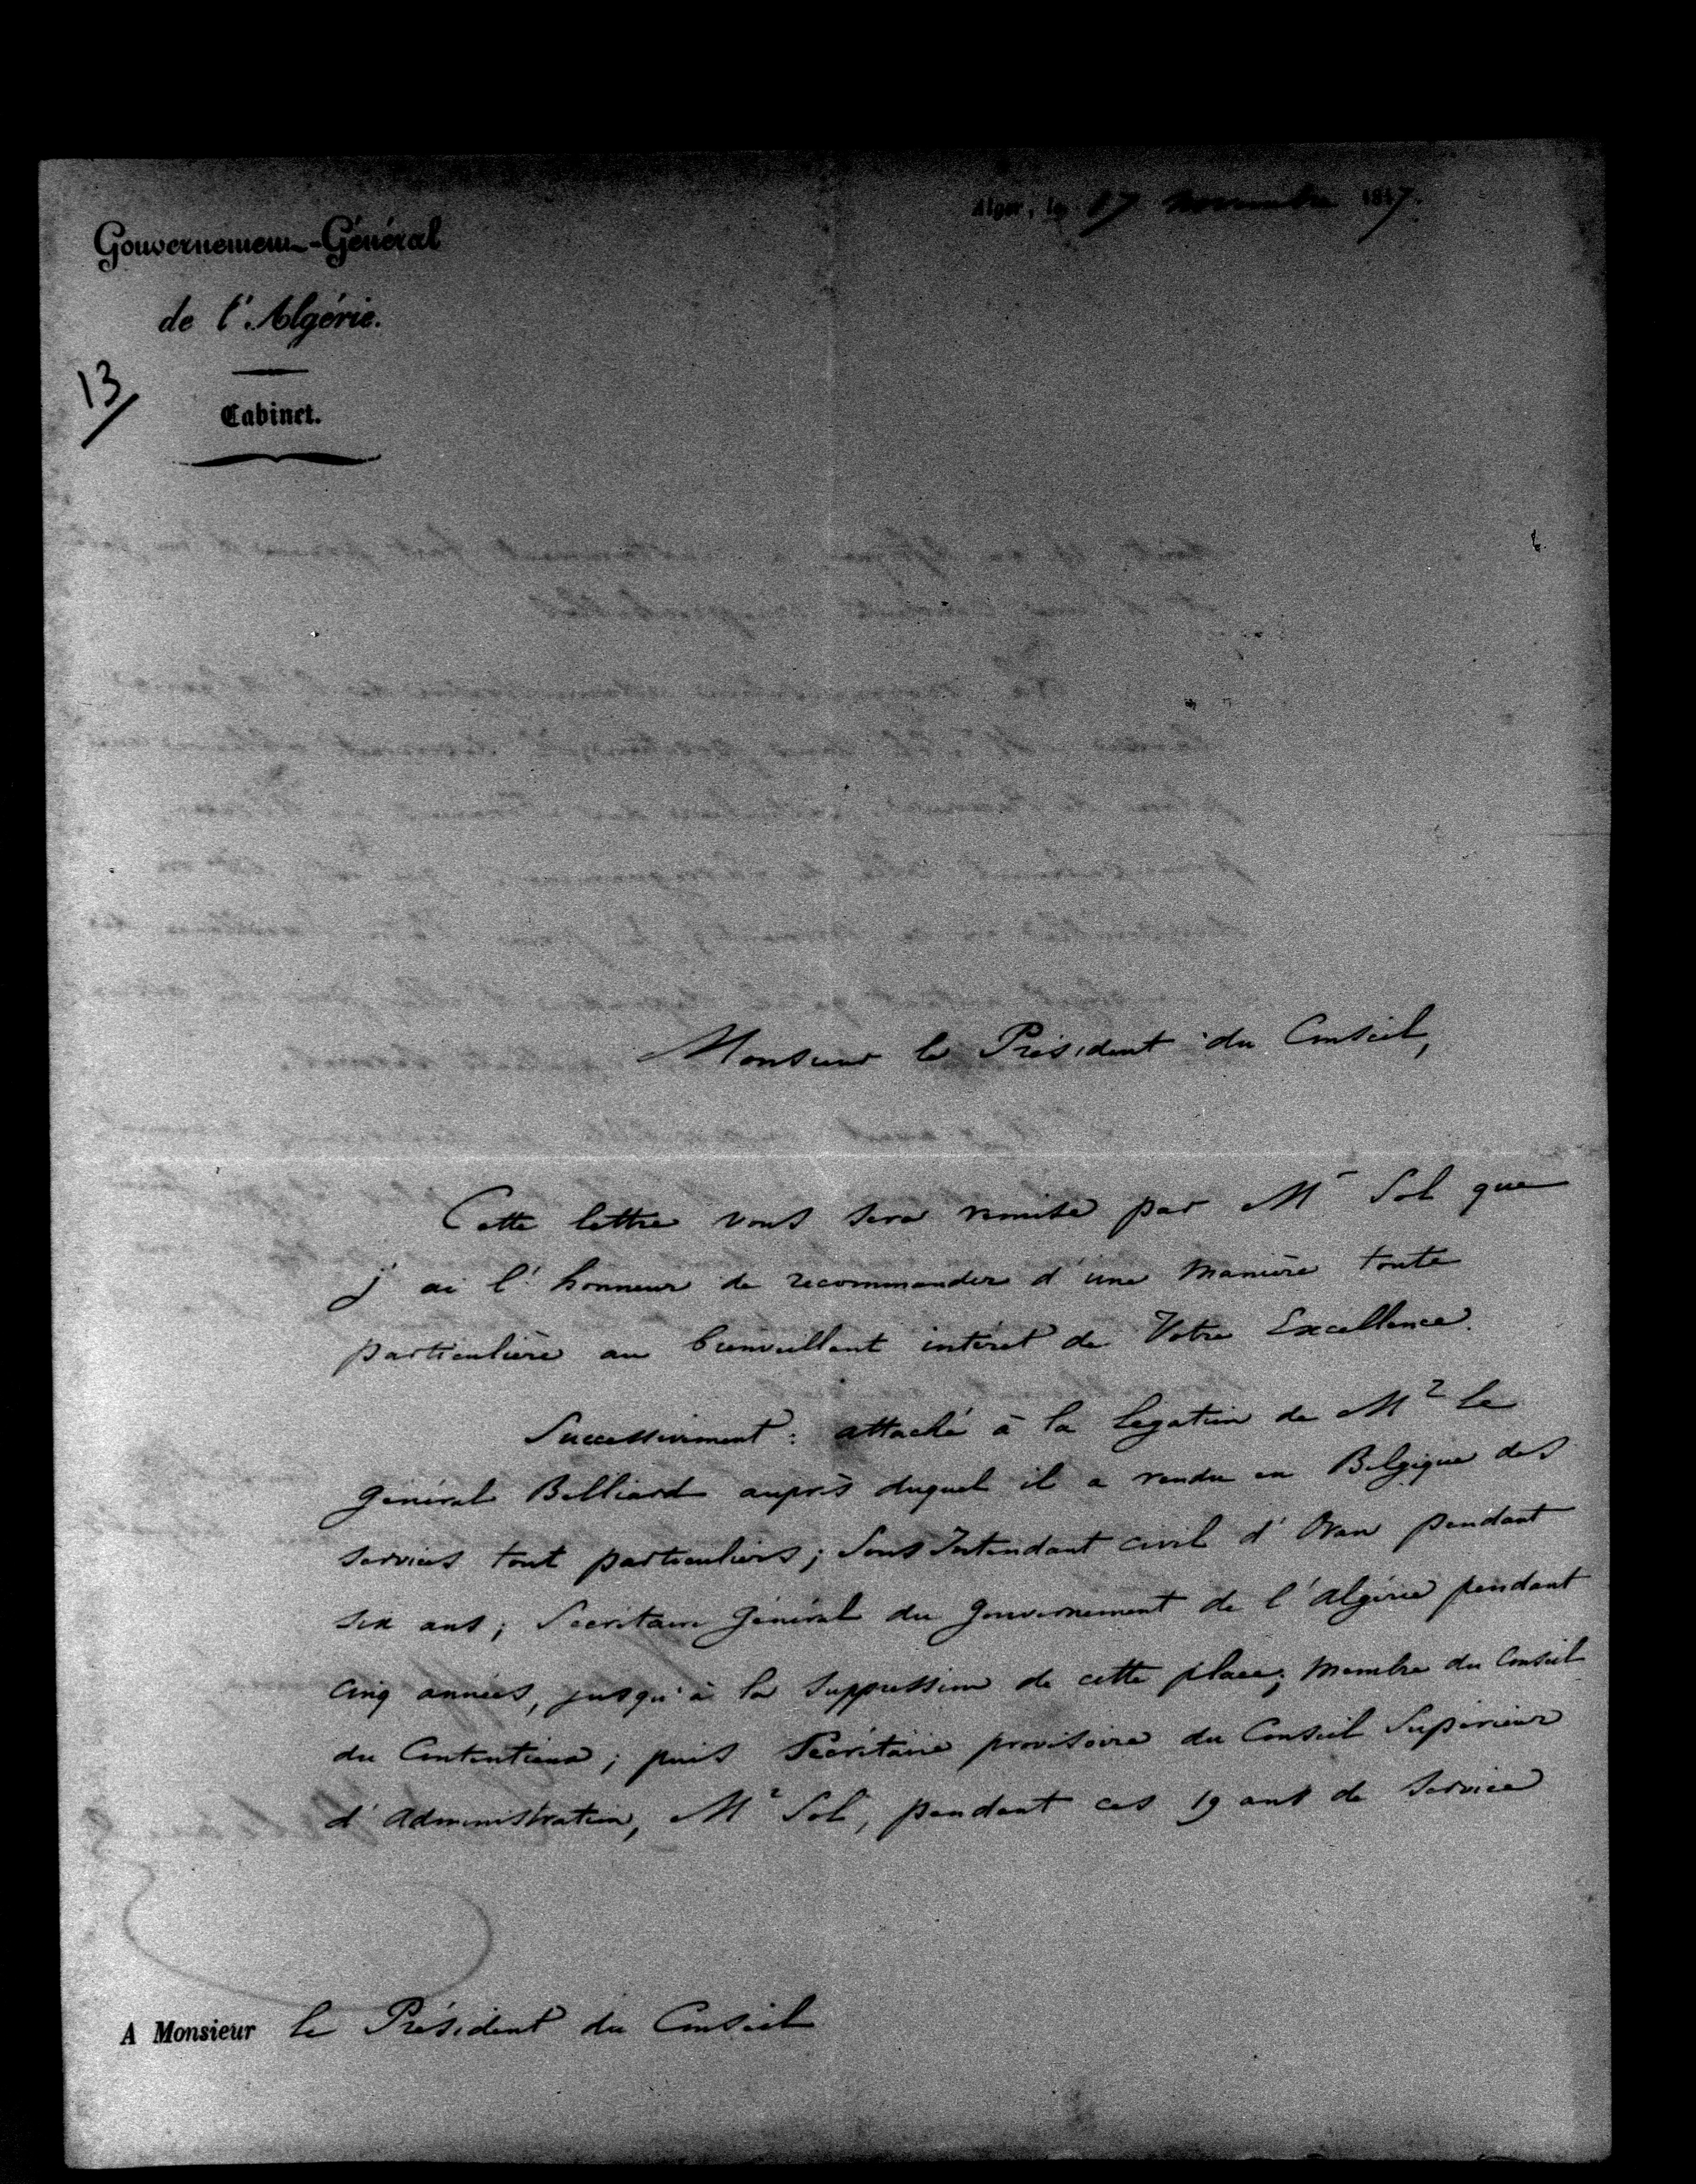 Alger, le 17 novembre 1847.
Gouvernement-Général
de l'Algérie.
13
Cabinet.
Monsieur le Président du Conseil,
Cette lettre vous sera remise par Mr Sol que
j'ai l'honneur de recommander d'une manière toute
particulière au bienveillant intérêt de Votre Excellence.
Successivement : attaché à la légation de Mr le
Général Belliard auprès duquel il a rendu en Belgique des
services tout particuliers ; Sous Intendant civil d'Oran pendant
six ans ; Secrétaire Général du Gouvernement de l'Algérie pendant
cinq années, jusqu'à la suppression de cette place ; membre du Conseil
du Contentieux ; puis Secrétaire provisoire du Conseil Supérieur
d'administration, Mr Sol, pendant ces 19 ans de service
A Monsieur le Président du Conseil